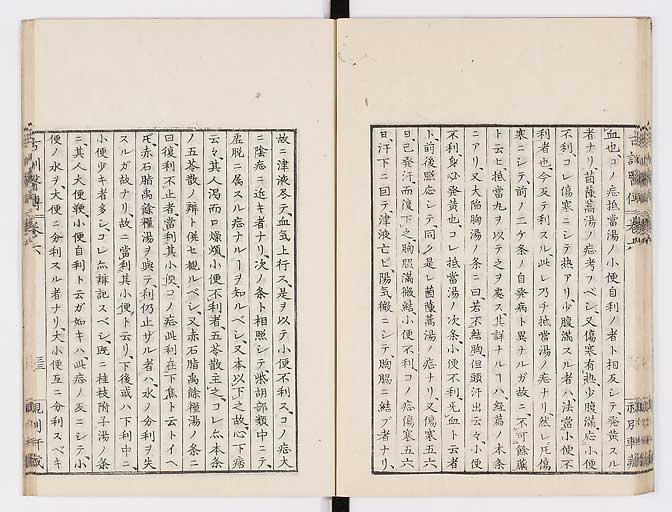 血也コノ症抵當湯ノ小便自利ノ者ト相反シテ発黄スル
者ナリ茵蔯蒿湯ノ症考フベシ又傷寒有熱少腹滿症小便
不利コレ傷寒ニシテ熱アリ少腹滿スル者ハ法當小便不
利者也今反テ利スル此レ乃チ抵當湯ノ症ナリ然レ𪜈傷
寒ニシテ前ノ二ケ条ノ自発病ト異ナルガ故ニ不可餘薬
ト云ヒ抵當丸ヲ以テ之ヲ處ス其詳ナルヿハ経篇ノ本条
ニアリ又大陥胸湯ノ条ニ曰若不結胸但頭汗出云々小便
不利身必発黄也コレ抵當湯ノ次条小便不利無血ト云者
ト前後照応シテ同ク是レ茵蔯蒿湯ノ症ナリ又傷寒五六
日已発汗而復下之胸脇滿微結小便不利コノ症傷寒五六
日汗下ニ因テ津液亡ビ陽気微ニシテ胸脇ニ結ブ者ナリ
故ニ津液尽テ血気上行ス是ヲ以テ小便不利スコノ症大
ニ陰症ニ近キ者ナリ次ノ条ト相照シテ柴胡部類中ニテ
虚脱ニ属スル症ナルヿヲ知ルベシ又本以下之故心下痞
云々其人渇而口燥煩小便不利者五苓散主之コレ亦本条
ノ五苓散ノ辨ト併セ観ルベシ又赤石脂禹餘糧湯ノ条ニ
曰復利不止者當利其小便コノ症此利在下焦ト云トイヘ
𪜈赤石脂禹餘糧湯ヲ與テ利仍止ザル者ハ水ノ分利ヲ失
スルガ故ナリ故ニ當利其小便ト云リ下後或ハ下利中ニ
小便少キ者多シコレ亦辨記スベシ既ニ桂枝附子湯ノ条
ニ其人大便鞕小便自利ト云ガ如キハ此症ノ反ニシテ小
便ノ水ヲ大便ニ分利スル者ナリ大小便互ニ分利スベキ